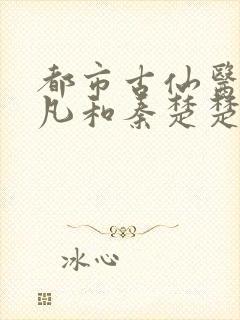 都市古仙醫
凡和秦楚楚
冰心